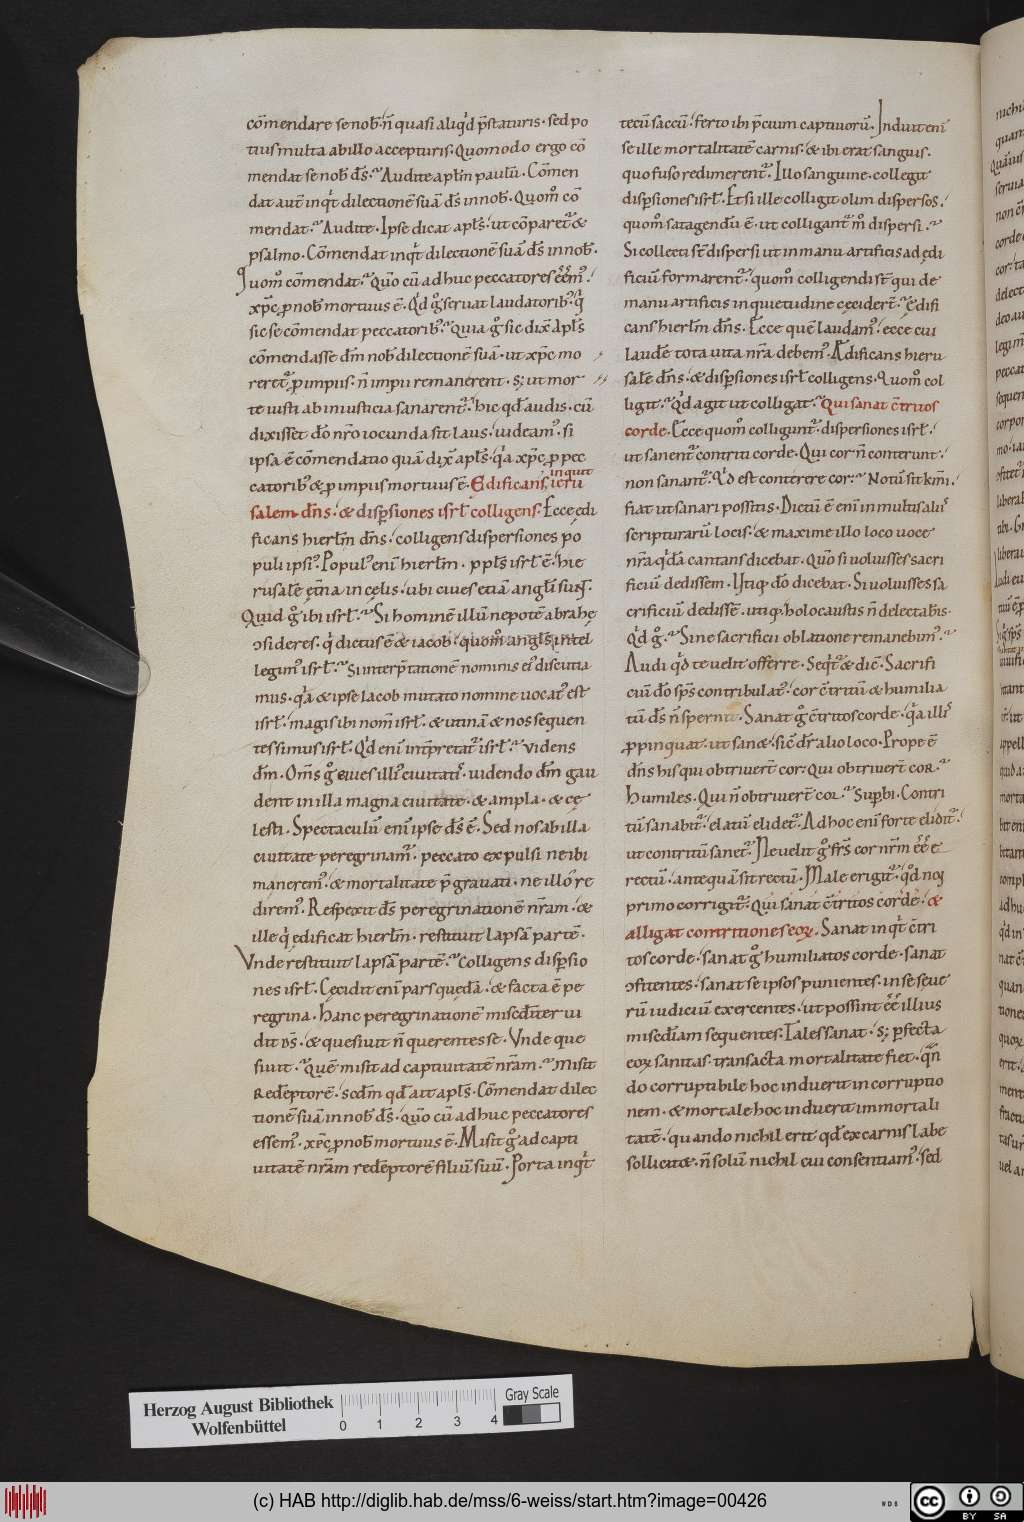 cōmendare se nob̄ n̄ quasi aliq̇d p̄staturis · sed po
tius multa ab illo accepturis. Quomodo ergo cō
mendat se nob̄ d̄s. Audite aptm̄ paulū. Cōmen
dat autē inq̇t dilectionē suā d̄s in nob̄. Quom̊ cō
mendat. Audite. Ipse dicat apts̄. ut cōparet᷑ &
psalmo. Cōmendat inq̇t dilectionē suā d̄s in nob̄.
Quom̊ cōmendat. Quō cū adhuc peccatores eēm᷒.
xp̄c ꝓ nob̄ mortuus ē. Qd g̊ seruat laudatorib᷒. q̇
sic se cōmendat peccatorib᷒. Quia g̊ sic dix̄ apts̄
cōmendasse dm̄ nob̄ dilectionē suā · ut xp̄c mo
reret᷑ ꝓ impiis · n̄ impii remanerent · s; ut mor
te iusti ab iniusticia sanarent᷑. hic qd̄ audis · cū
dixisset dō nr̄o iocunda sit laus · uideam᷒. si
ipsa ē cōmendatio quā dix̄ apts̄. q̇a xp̄c ꝓ pec
inquit
catorib᷒ & ꝓ impiis mortuus ē. Edificans ieru
salem dn̄s. & disp̄siones isrt̄ colligens. Ecce edi
ficans hiertm̄ dn̄s. colligens dispersiones po
puli ipsi᷒. Popul᷒ enī hiertm̄. ppts̄ isrt̄ ē. hie
rusalē et̄na in celis. ubi ciues etiā angti̅ sunt.
Quid g̊ ibi isrt̄. Si hominē illū nepotē abrahę
ↄsideres. q̇ dictus ē & iacob. quom̊ angts̄ intel
legim᷒ isrt̄. Si interp̄tationē nominis ei᷒ discutia
mus. q̇a & ipse Iacob mutato nomine uocat᷒ est
isrt̄. magis ibi nom̄ isrt̄. & utinā & nos sequen
tes simus isrt̄. Qd̄ enī int̄pretat᷑ isrt̄. videns
dm̄. Om̄s g̊ ciues illi᷒ ciuitatis. uidendo dm̄ gau
dent in illa magna ciuitate. & ampla. & cę
lesti. Spectaculū enī ipse d̄s ē. Sed nos ab illa
ciuitate peregrinam᷑. peccato expulsi ne ibi
manerem᷒. & mortalitate p̄grauati. ne illo re
direm᷒. Respexit d̄s peregrinationē nr̄am. &
ille q̇ edificat hiertm̄. restituit lapsā partē.
Vnde restituit lapsā partē. Colligens disp̄sio
nes isrt̄. Cecidit enī pars quedā. & facta ē pe
regrina. Hanc peregrinationē misedīter ui
dit ds̄. & quesiuit n̄ querentes se. Vnde que
siuit. Quē misit ad captiuitatē nr̄am. Misit
Redēptorē. scdm̄ qd̄ ait apts̄. Cōmendat dilec
tionē suā in nob̄ d̄s. quō cū adhuc peccatores
essem᷒. xp̄c ꝓ nob̄ mortuus ē. Misit g̊ ad capti
uitatē nr̄am redēptorē filiū suū. Porta inq̇t
tecū saccū. fer to ibi p̄cium captiuorū. Induit enī
se ille mortalitatē carnis. & ibi erat sanguis.
quo fuso redimerent᷑. Illo sanguine collegit
disp̄siones isrt̄. Et si ille colligit olim dispersos.
quom̊ satagendū ē. ut colligant᷑ m̊ dispersi.
Si collecti st̄ dispersi ut in manu artificis ad edi
ficiū formarent᷑. quom̊ colligendi st̄ qui de
manu artificis inquietudine cecidert̄. Edifi
cans hiertm̄ dn̄s. Ecce quē laudam᷒. ecce cui
laudē tota uita nr̄a debem᷒. Aedificans hieru
salē dn̄s. & disp̄siones isrt̄ colligens. Quom̊ col
ligit. Qd̄ agit ut colligat. Qui sanat c̄tritos
corde. Ecce quom̊ colligunt᷑ dispersiones isrt̄.
ut sanent᷑ contriti corde. Qui cor n̄ conterunt.
non sanant᷑. Qd̄ est conterere cor. Notū sit km̄i.
fiat ut sanari possitis. Dictū ē enī in multis aliis
scripturarū locis. & maxime illo loco uoce
nr̄a q̇dā cantans dicebat. Quō si uoluisses sacri
ficiū dedissem. Utiq; dō dicebat. Si uoluisses sa
crificiū dedissē. utiq; holocaustis n̄ delectabis.
Qd̄ g̊. Sine sacrificii oblatione remanebim᷒.
Audi qd̄ te uelit offerre. Seq̇t᷑ & dic̄. Sacrifi
ciū dō sp̄s contribulat᷒. cor c̄tritū & humilia
tū d̄s n̄ spernit. Sanat g̊ c̄tritos corde. q̇a illis
ꝓpinquat ut sanet. sic̄ dr̄ alio loco. Prope ē
dn̄s his qui obtriuert̄ cor. Qui obtriuert̄ cor.
Humiles. Qui n̄ obtriuert̄ cor. Sup̄bi. Contri
tū sanabit᷑. elatū elidet᷑. Ad hoc enī forte elidit᷑.
ut contritū sanet᷑. Ne uelit g̊ frs̄ cor nr̄m eē e
rectū. antequā sit rectū. Male erigit᷑. qd̄ non
primo corrigit᷑. Qui sanat c̄tritos corde. &
alligat contritiones eoꝝ. Sanat inq̇t c̄tri
tos corde. sanat g̊ humiliatos corde. sanat
ↄfitentes. sanat se ipsos punientes. in se seue
rū iudiciū exercentes. ut possint eē illius
misedīam sequentes. Tales sanat. s; p̄fecta
eoꝝ sanitas. transacta mortalitate fiet. qn̄
do corruptibile hoc induerit incorruptio
nem. & mortale hoc induerit immortali
tatē. quando nichil erit qd̄ ex carnis labe
sollicitet. n̄ solū nichil cui consentiam᷒. sed
Herzog August Bibliothek
Wolfenbüttel
0 1 2 3 4
Gray Scale
(c) HAB http://diglib.hab.de/mss/6-weiss/start.htm?image=00426
WDB
cc BY SA